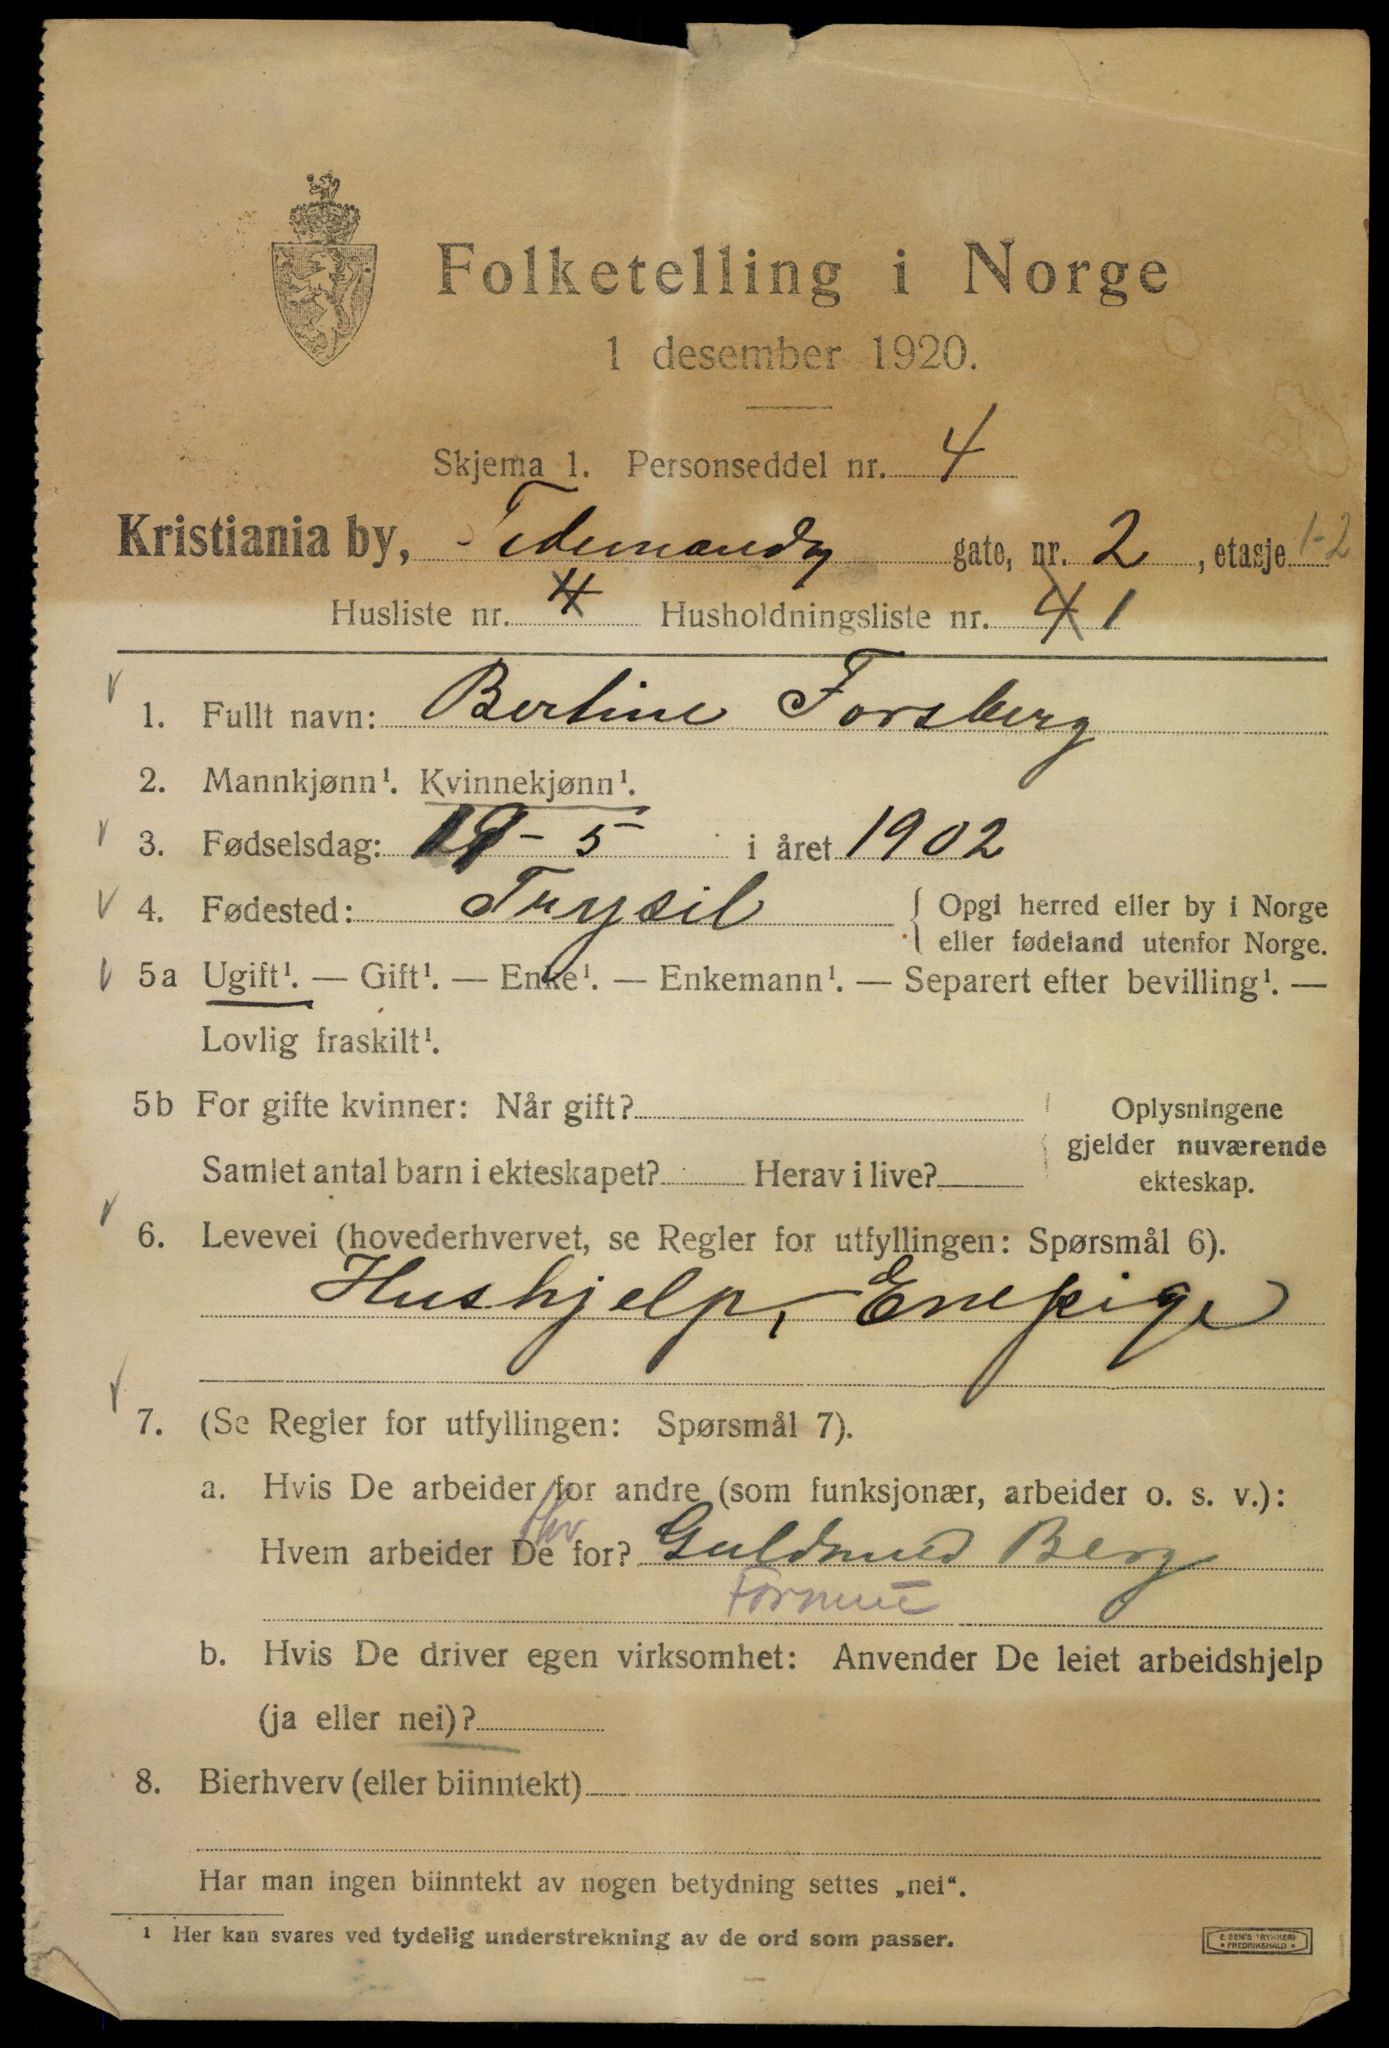 Folketelling i Norge
1 desember 1920.
Skjema 1. Personseddel nr. 4
Kristiania by, Tidemands gate, nr. 2, etasje 1-2
Husliste nr. 4 Husholdningsliste nr. 4 1
1. Fullt navn: Bertine Forsberg
2. Mannkjønn¹. Kvinnekjønn¹.
3. Fødselsdag: 19-5 i året 1902
4. Fødested: Trysil { Opgi herred eller by i Norge
eller fødeland utenfor Norge.
5a Ugift¹. — Gift¹. — Enke¹. — Enkemann¹. — Separert efter bevilling¹. —
Lovlig fraskilt¹.
5b For gifte kvinner: Når gift? Oplysningene
gjelder nuværende
Samlet antal barn i ekteskapet? Herav i live?
ekteskap.
6. Levevei (hovederhvervet, se Regler for utfyllingen: Spørsmål 6).
Hushjelp, Enepige
7. (Se Regler for utfyllingen: Spørsmål 7).
a. Hvis De arbeider for andre (som funksjonær, arbeider o. s. v.):
Hvem arbeider De for? Guldmund Berg
b. Hvis De driver egen virksomhet: Anvender De leiet arbeidshjelp
(ja eller nei)?
8. Bierhverv (eller biinntekt)
Har man ingen biinntekt av nogen betydning settes „nei“.
¹ Her kan svares ved tydelig understrekning av de ord som passer.
FREDRIKSHALD